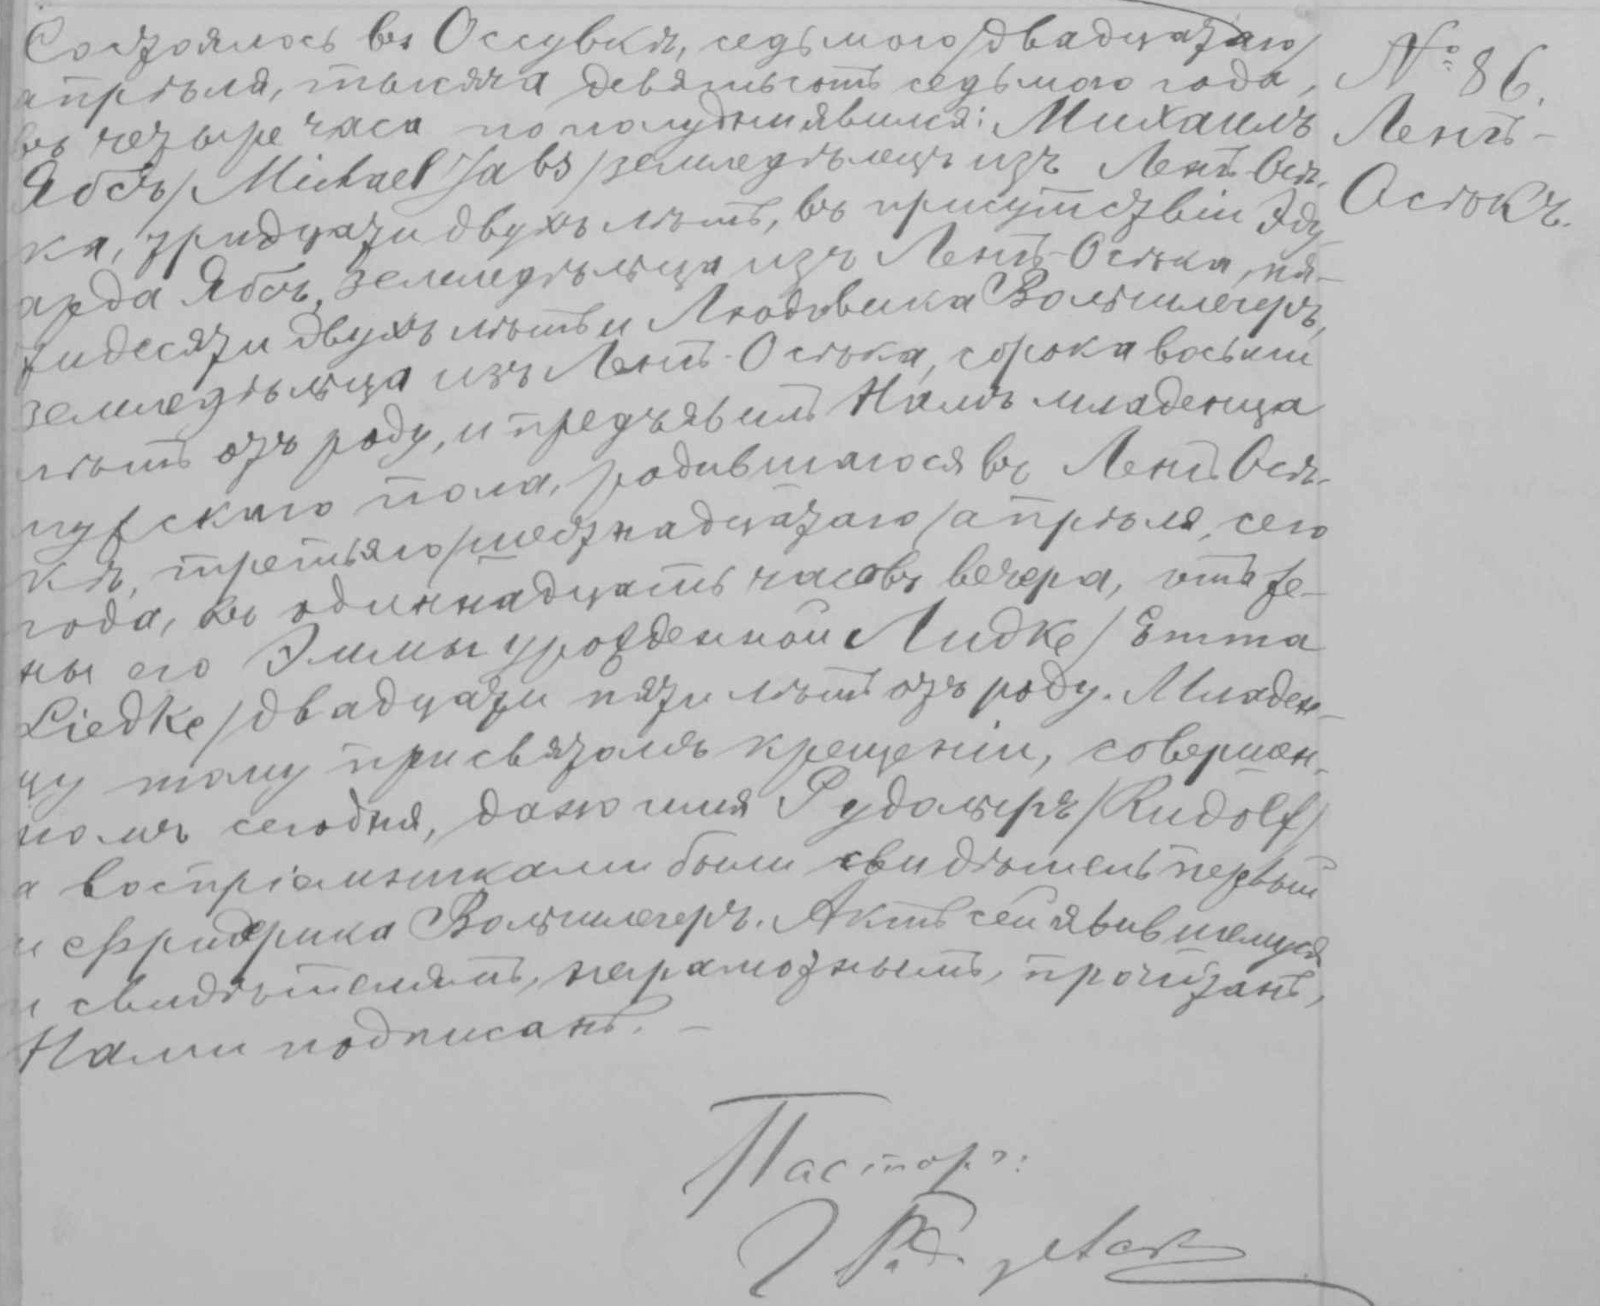 Состоялось въ Оссувкѣ, седьмого/двадцатаго/
апрѣля, тысяча девятьсотъ седьмого года,
въ четыре часа по полудни явился: Михаилъ
Ябсъ/Michael Jabs/земледѣлецъ изъ Ленъ-Осѣ-
ка, тридцати двухъ лѣтъ, въ присутствіи Эду-
арда Ябсъ, земледѣльца изъ Ленъ-Осѣка, пя-
тидесяти двухъ лѣтъ и Людовика Вольшлегеръ,
земледѣльца изъ Ленъ-Осѣка, сорока восьми
лѣтъ отъ роду, и предъявилъ Намъ младенца
мужскаго пола, родившагося въ Ленъ-Осѣ-
кѣ, третьяго/шестнадцатаго/апрѣля, сего
года, въ одиннадцать часовъ вечера, отъ же-
ны его Эммы урожденной Лидке/Emma
Liedke/двадцати пяти лѣтъ отъ роду. Младен-
цу тому при святомъ крещеніи, совершен-
номъ сегодня, дано имя Рудольфъ/Rudolf/
а воспріемниками были свидѣтель первый
и Фридерика Вольшлегеръ. Актъ сей явившемуся
и свидѣтелямъ, неграмотнымъ, прочитанъ,
Нами подписанъ. –
Пасторъ:
№ 86.
Ленъ-
Осѣкъ.